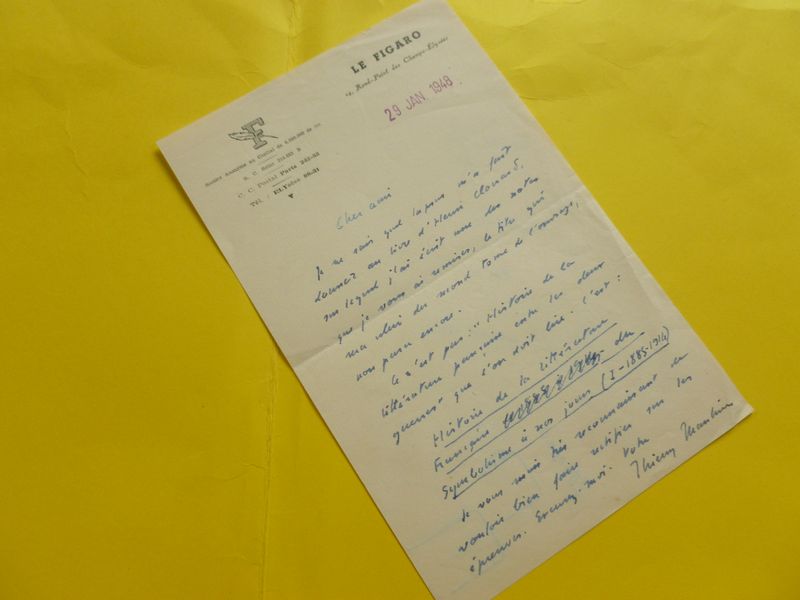 LE FIGARO
14, Rond-Point des Champs-Élysées
29 JAN 1948
F
Société Anonyme au Capital de
R. C. Seine
C. C. Postal Paris 242-53
Tél. : ELYsées 98-31
Cher ami
Je ne sais quel lapsus m'a fait
donner au livre d'Henri Clouard,
sur lequel j'ai écrit une des notes
que je vous ai remises, le titre qui
sera celui du second tome de l'ouvrage,
non paru encore.
Ce n'est pas : "Histoire de la
littérature française entre les deux
guerres" que l'on doit lire. C'est :
Histoire de la littérature
Française du
Symbolisme à nos jours (I - 1885-1914)
Je vous serais très reconnaissant de
vouloir bien faire rectifier sur les
épreuves. Excusez-moi. Votre
Thierry Maulnier